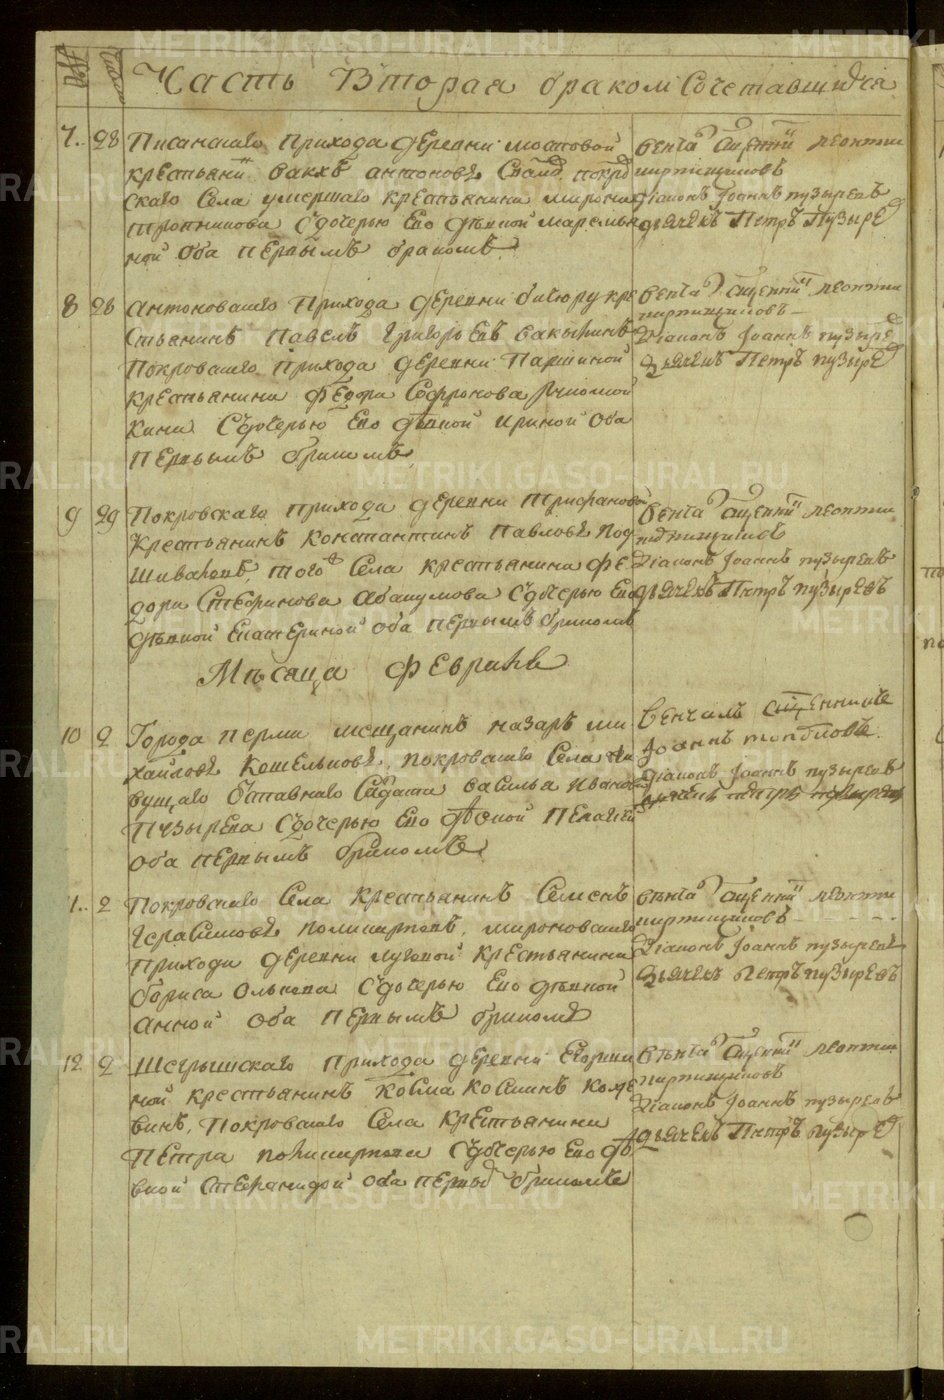 Часть Вторая браком Сочетавшихся
7.. 28 Писанскаго прихода деревни мостовой
крестьянинъ антоновъ
скаго Села умершаго крестьянина мирона
Сдочерью Его дѣвкой
ной оба первымъ бракомъ
венча Священникъ леонтий
пирпищиковъ
Дiаконъ Iоаннъ пузыревъ
дьячекъ Петръ Пузырев
8 28 Антоновскаго Прихода деревни кре
стьянинъ Павелъ Григорьевъ
Покровскаго прихода деревни Паршиной
крестьянина Федора Софронова
кина Сдочерью Его дѣвкой ириной оба
первымъ бракомъ
венча Священникъ леонтий
пирпищиковъ
Дiаконъ Iоаннъ пузырев
дьячекъ Петръ пузырев
9 29 Покровскаго прихода деревни трифановой
Крестьянинъ Константинъ Павловъ Под
шиваловъ, того Села крестьянина Фе
дора Стефанова Абакумова Сдочерью Его
дѣвкой Екатериной оба первымъ бракомъ
венча Священникъ леонтий
пирпищиковъ
Дiаконъ Iоаннъ пузыревъ
дьячекъ Петръ пузыревъ
Мѣсяца Февраля
10 2 Города перми мещанинъ назаръ ми
хайловъ Кошельковъ, покровскаго Села жи
вущаго отставнаго Солдата василья Иванова
Пузырева Сдочерью Его дѣвкой Пелагией
оба первымъ бракомъ
Венчалъ Священникъ
Iоаннъ топорковъ
Дiаконъ Iоаннъ пузыревъ
11.. 2 Покровскаго Села крестьянинъ Семенъ
Герасимовъ поликарповъ, мироновскаго
прихода деревни луговой крестьянина
бориса Олькова Сдочерью Его дѣвкой
анной оба первымъ бракомъ
венча Священникъ леонтий
пирпищиковъ
Дiаконъ Iоаннъ пузыревъ
дьячекъ Петръ пузыревъ
12 2 Шегришскаго прихода деревни
ной крестьянинъ Козма Козминъ
винъ, Покровскаго Села крестьянина
Петра поликарпова Сдочерью Его дѣ
вкой Стефанидой оба первы бракомъ
венча Священникъ леонтий
пирпищиковъ
Дiаконъ Iоаннъ пузыревъ
дьячекъ Петръ пузырев
METRIKI.GASO-URAL.RU